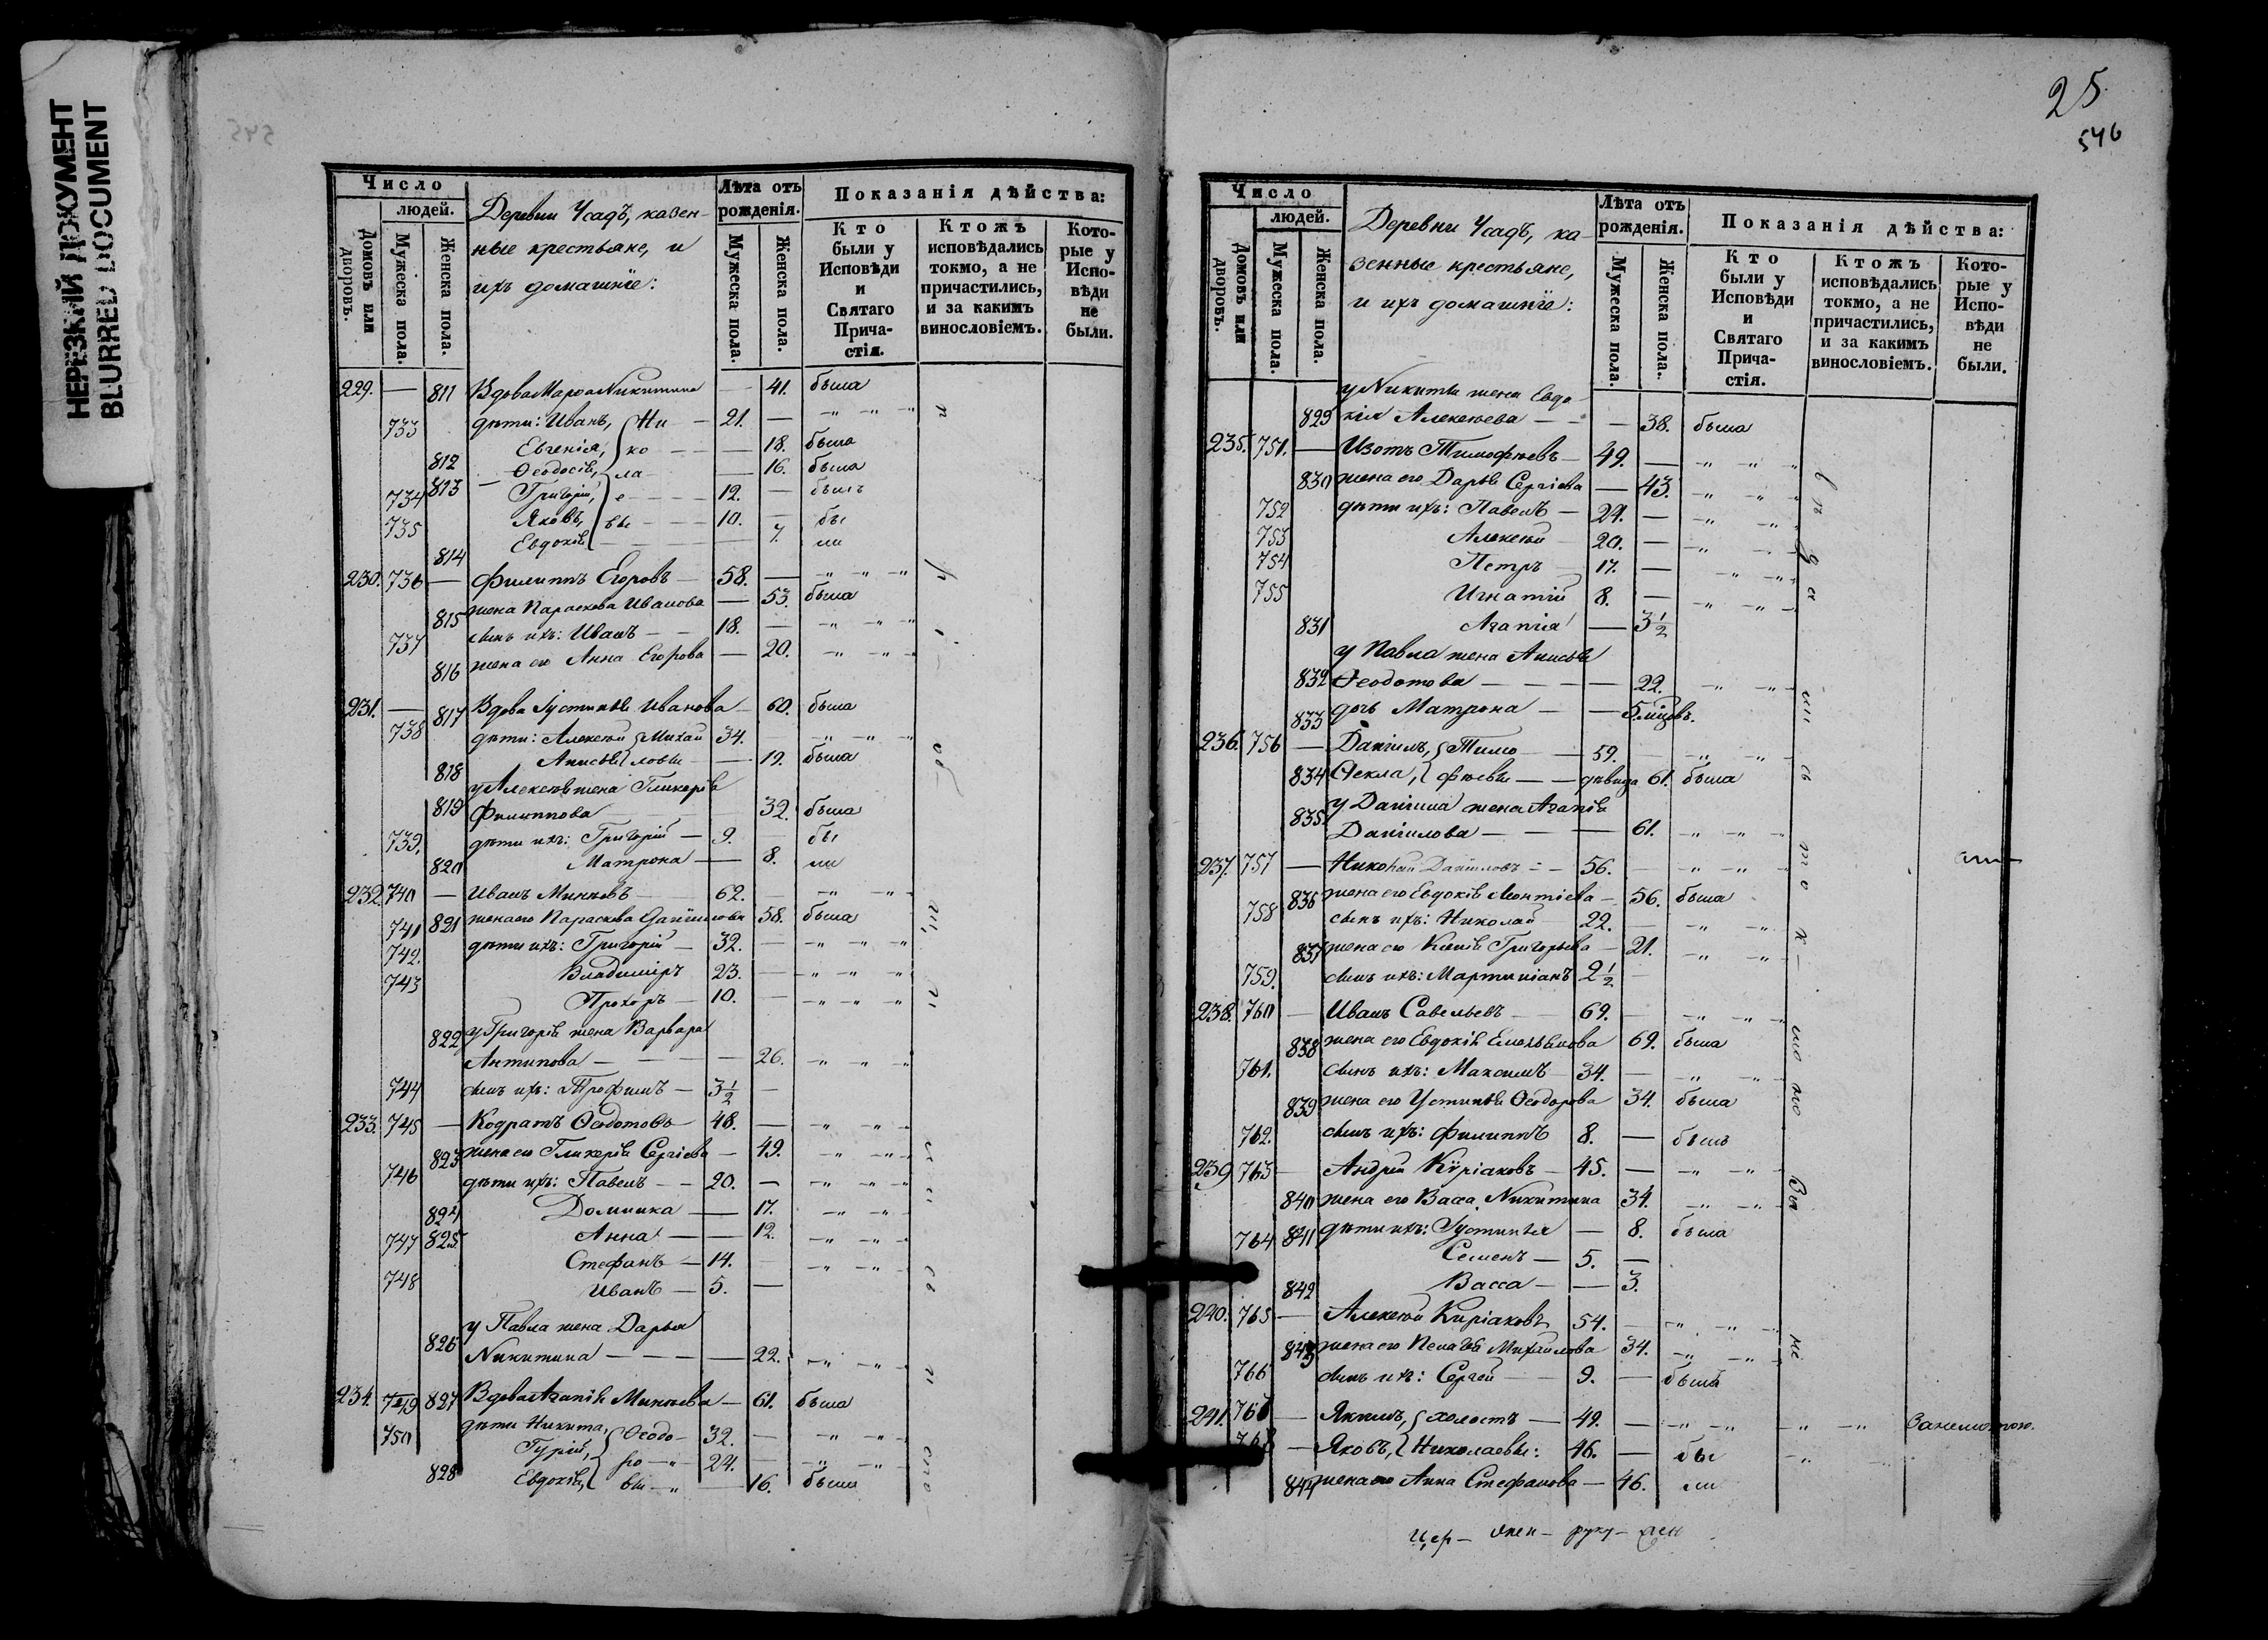 НЕРЕЗКИЙ ДОКУМЕНТ
BLURRED DOCUMENT
545
Число
людей.
Домовъ или дворовъ.
Мужеска пола.
Женска пола.
Деревни Усадъ, казен-
ные крестьяне, и
ихъ домашніе:
Лѣта отъ рожденія.
Мужеска пола.
Женска пола.
Показанія дѣйства:
Кто были у Исповѣди и Святаго Прича- стія.
Ктожъ исповѣдались токмо, а не причастились, и за какимъ винословіемъ.
Кото- рые у Испо- вѣди не были.
229. — 811 Вдова Марѳа Никитина — 41. была
733 дѣти: Иванъ, Ни — 21. — -„- -„-
812 Евгенія, ко — 18. была
813 Ѳеодосія, ла — 16. была
734 Григорій, е — 12. — былъ
735 Яковъ, вы — 10. — бы
814 Евдокія — 7. ли
230. 736 — Филиппъ Егоровъ — 58. — -„- -„-
815 жена Параскева Иванова — 53. была
737 сынъ ихъ: Иванъ — 18. — -„- -„-
816 жена его Анна Егорова — 20. -„- -„-
231. — 817 Вдова Іустинія Иванова — 60. была
738 дѣти: Алексѣй Михай 34. — -„- -„-
818 Анисья ловы — 19. была
у Алексѣя жена Гликерія
819 Филиппова 32. была
739. дѣти ихъ: Григорій — 9. бы
820 Матрона — 8. ли
232. 740 — Иванъ Минѣевъ — 62. — -„- -„-
741 821 жена его Параскева Даніилова 58. была
742. дѣти ихъ: Григорій — 32. — -„- -„-
743 Владиміръ 23. — -„- -„-
Прохоръ — 10. — -„- -„-
822 у Григорія жена Варвара
Антипова — 26. -„- -„-
744 сынъ ихъ: Трофимъ — 3½ —
233. 745 — Кодратъ Ѳедотовъ 48. — -„- -„-
823 жена его Гликерія Сергіева — 49. -„- -„-
746 дѣти ихъ: Павелъ — 20. — -„- -„-
824 Домника — 17. -„- -„-
747 825 Анна — 12. -„- -„-
Стефанъ — 14. -„- -„-
748 Иванъ — 5. —
у Павла жена Дарья
826 Никитина — 22. -„- -„-
234. 749 827 Вдова Агапія Минѣева — 61. была
750 дѣти Никита, Ѳеодо — 32. — -„- -„-
Гурій, ро — 24. — -„- -„-
828 Евдокія, вы — 16. была
25
546
Число
людей.
Домовъ или дворовъ.
Мужеска пола.
Женска пола.
Деревни Усадъ, ка-
зенные крестьяне,
и ихъ домашніе:
Лѣта отъ рожденія.
Мужеска пола.
Женска пола.
Показанія дѣйства:
Кто были у Исповѣди и Святаго Прича- стія.
Ктожъ исповѣдались токмо, а не причастились, и за какимъ винословіемъ.
Кото- рые у Испо- вѣди не были.
у Никиты жена Евдо-
829 кія Алексѣева — 38. была
235. 751. — Изотъ Тимофѣевъ — 49. — -„- -„-
830 жена его Дарья Сергіева — 43. -„- -„-
752 дѣти ихъ: Павелъ — 24. — -„- -„-
753 Алексѣй 20. — -„- -„-
754 Петръ 17. — -„- -„-
755 Игнатій 8. — -„- -„-
831 Агапія — 3½
у Павла жена Анисья
832 Ѳеодотова — 22. -„- -„-
833 дочь Матрона — 5 мѣцовъ.
236. 756 — Даніилъ, Тимо — 59. — -„- -„-
834 Ѳекла, фѣевы — дѣвица 61. была
у Даніила жена Агапія
835 Даніилова — 61. -„- -„-
237. 757 — Николай Даніиловъ — 56. — -„- -„-
836 жена его Евдокія Леонтіева — 56. была
758 сынъ ихъ: Николай 22. — -„- -„-
837 жена его Ксенія Григорьева — 21. -„- -„-
759. сынъ ихъ: Мартиніанъ 2½ —
238. 760 — Иванъ Савельевъ 69. — -„- -„-
838 жена его Евдокія Емельянова 69. была
761. сынъ ихъ: Максимъ — 34. — -„- -„-
839 жена его Устинья Ѳеодорова 34. была
762. сынъ ихъ: Филиппъ 8. — былъ
239 763 — Андрей Кѵріаковъ — 45. — -„- -„-
840 жена его Васса Никитина 34. -„- -„-
841 дѣти ихъ: Іустинья — 8. была
764 Семенъ — 5. —
842 Васса — 3.
240. 765 — Алексѣй Киріаковъ 54. — -„- -„-
843 жена его Пелагія Михайлова 34. -„- -„-
766 сынъ ихъ: Сергѣй — 9. — былъ
241. 767 — Якимъ, холостъ — 49. — -„- -„- -„- -„-
768 — Яковъ, Николаевы: 46. — бы
844 жена его Анна Стефанова — 46. ли